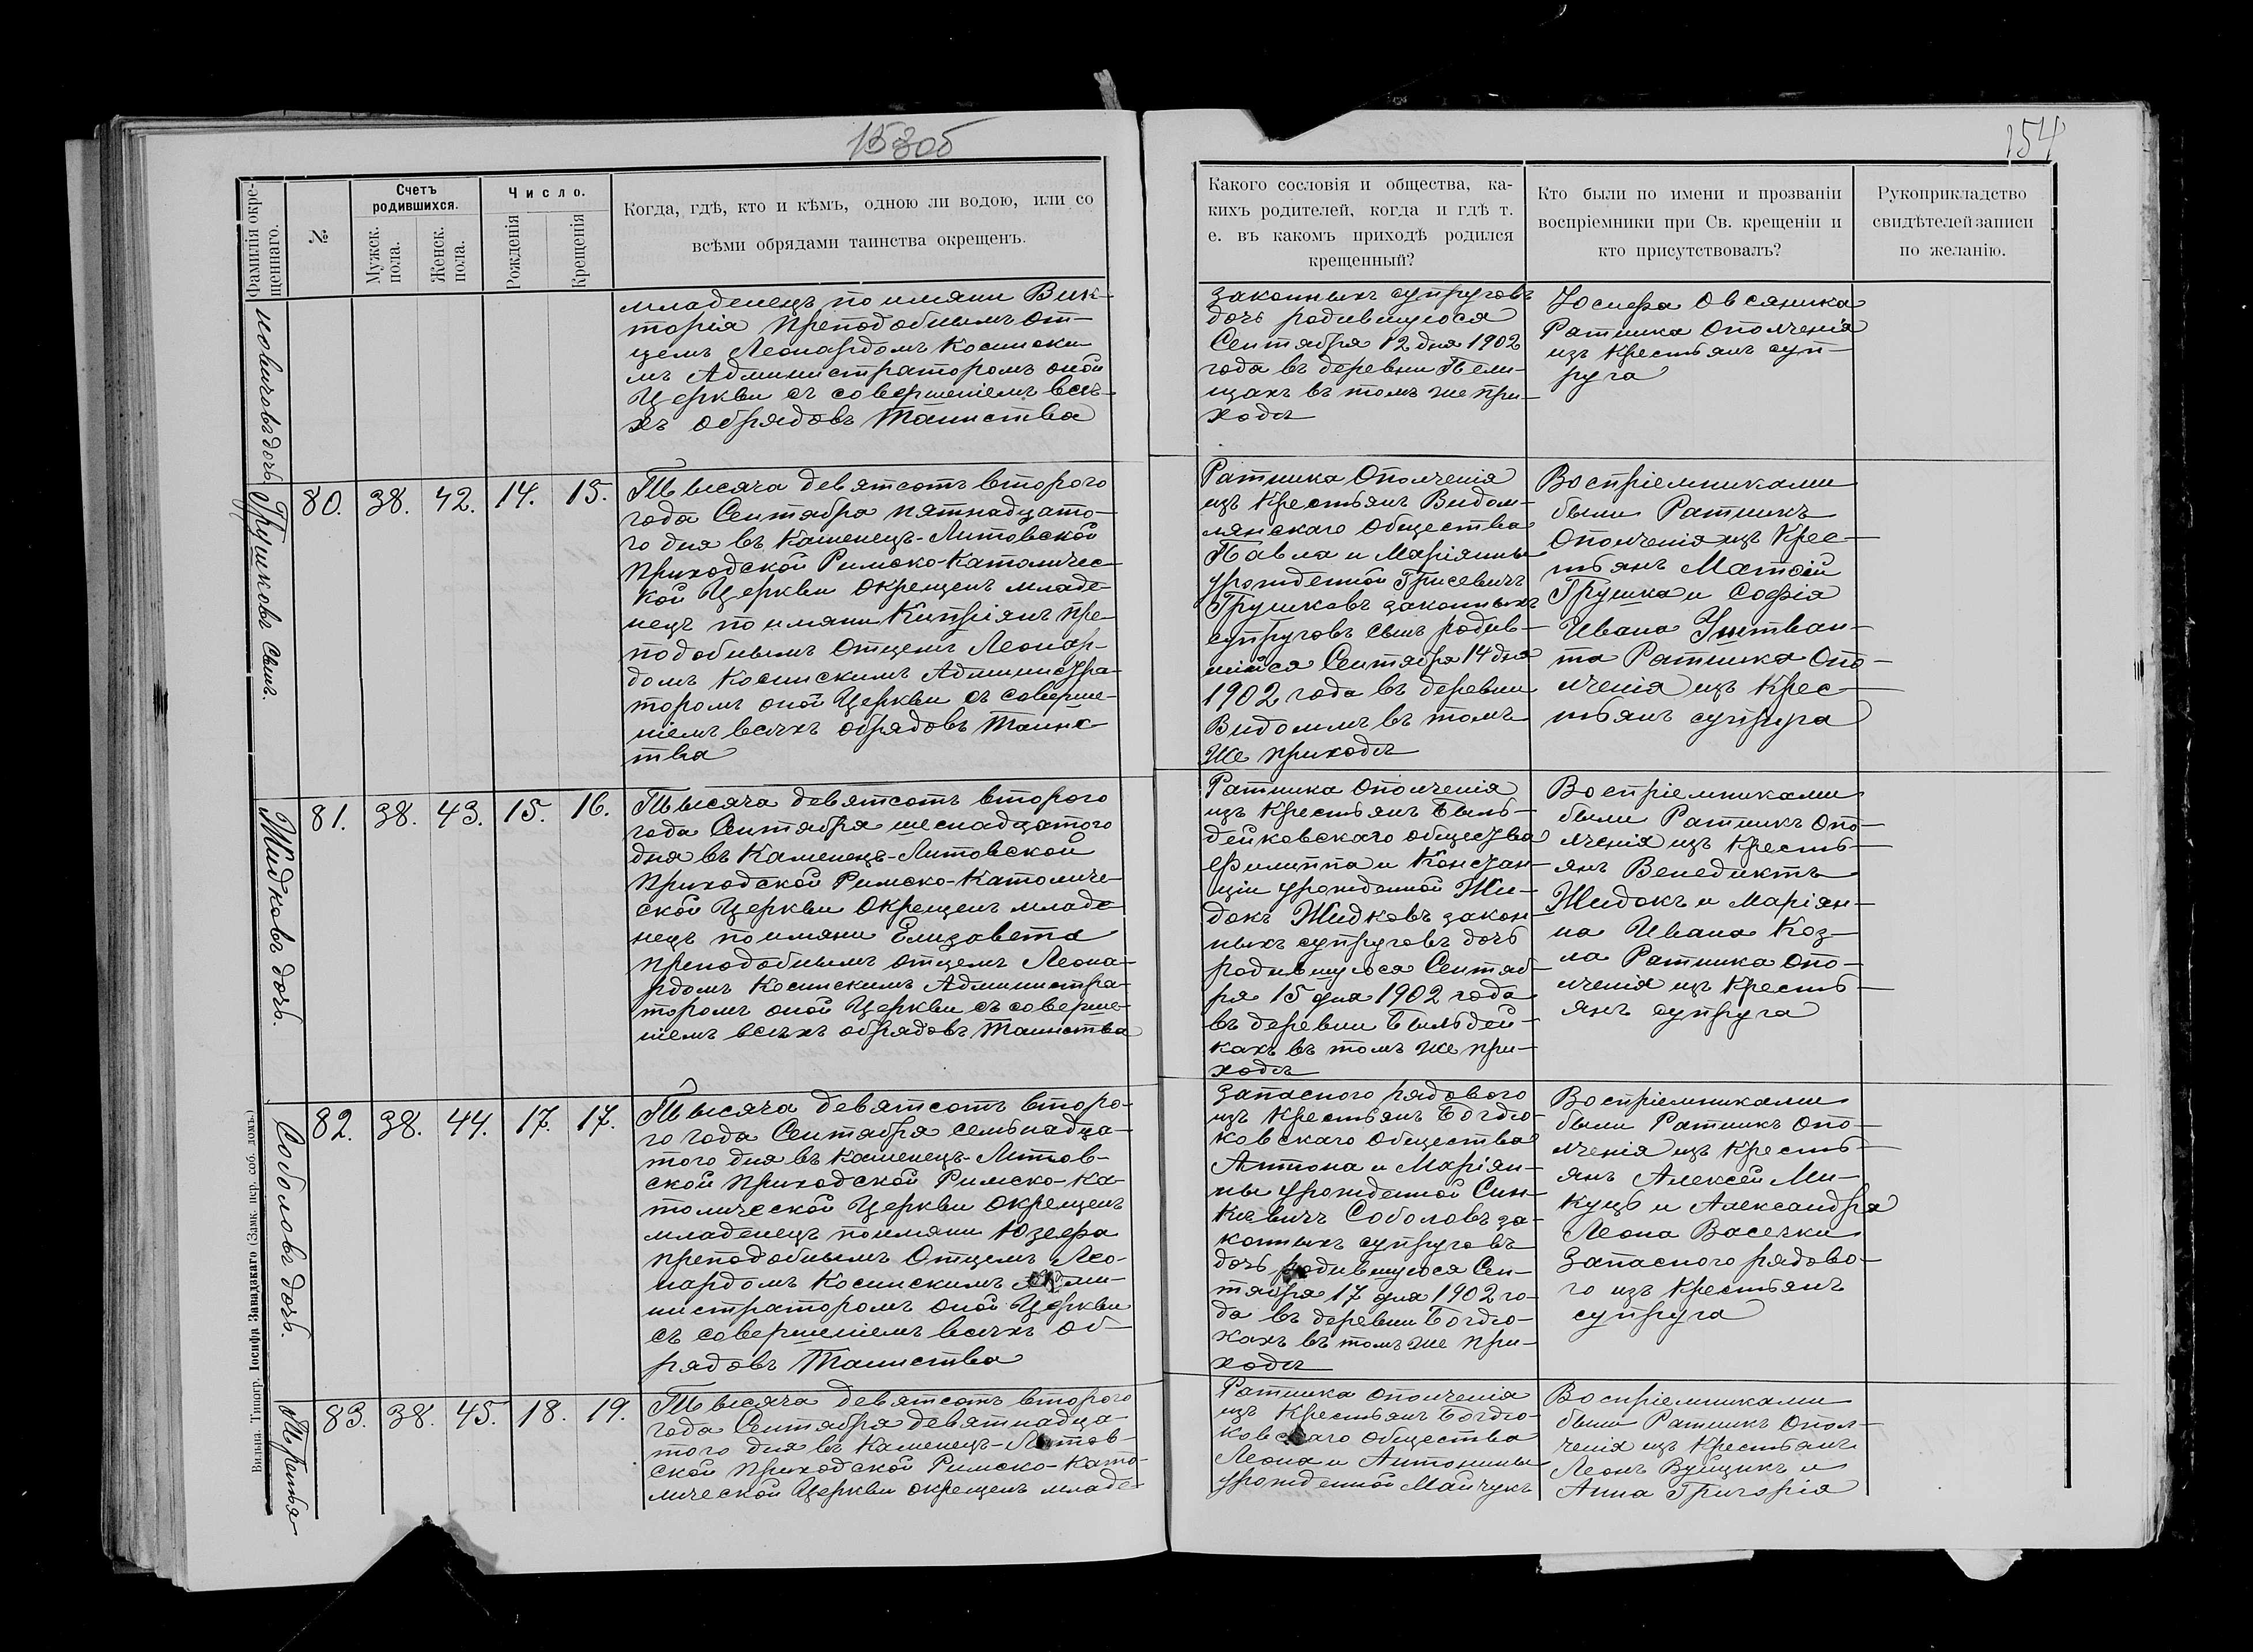 153об
154
Фамилія окре-
щеннаго.
№
Счетъ
родившихся.
Мужск.
пола.
Женск.
пола.
Число.
Рожденія
Крещенія
Когда, гдѣ, кто и кѣмъ, одною ли водою, или со
всѣми обрядами таинства окрещенъ.
Какого сословія и общества, ка-
кихъ родителей, когда и гдѣ т.
е. въ какомъ приходѣ родился
крещенный?
Кто были по имени и прозванію
воспріемники при Св. крещеніи и
кто присутствовалъ?
Рукоприкладство
свидѣтелей записи
по желанію.
дочь
младенецъ по имяни Вик-
торія Преподобнымъ От-
цемъ Леонардомъ Косински-
мъ Администраторомъ оной
Церкви съ совершеніемъ всѣ-
хъ обрядовъ Таинства
законныхъ супруговъ
дочь родившуюся
Сентября 12 дня 1902
года въ деревни Пели-
щахъ въ томъ же при-
ходѣ
Іосифа Овсяника
Ратника Ополченія
изъ Крестьянъ суп-
руга
Грушковъ сынъ.
80. 38. 42. 14. 15.
Тысяча девятсотъ второго
года Сентября пятнадцато-
го дня въ Каменецъ-Литовской
Приходской Римско-Католичес-
кой Церкви окрещенъ младе-
нецъ по имяни Кипріянъ Пре-
подобнымъ Отцемъ Леонар-
домъ Косинскимъ Администра-
торомъ оной Церкви съ соверше-
ніемъ всѣхъ обрядовъ Таинс-
тва
Ратника Ополченія
изъ Крестьянъ Видом-
лянскаго Общества
Павла и Маріянны
урожденной Грисевичъ
Грушковъ законныхъ
супруговъ сынъ родив-
шійся Сентября 14 дня
1902 года въ деревни
Видомлѣ въ томъ
же приходѣ
Воспріемниками
были Ратникъ
Ополченія изъ Крес-
тьянъ Матѳій
Грушка и Софія
Ивана
Ратника Опо-
лченія изъ Крес-
тьянъ супруга
Жидковъ дочь.
81. 38. 43. 15. 16.
Тысяча девятсотъ второго
года Сентября шеснадцатого
дня въ Каменецъ-Литовской
Приходской Римско-Католиче-
ской Церкви окрещенъ младе-
нецъ по имяни Елизавета
преподобнымъ отцемъ Леона-
рдомъ Косинскимъ Администра-
торомъ оной Церкви съ соверше-
ніемъ всѣхъ обрядовъ Таинства
Ратника Ополченія
изъ Крестьянъ Быль-
дейковскаго общества
Филиппа и Констан-
ціи урожденной Жи-
докъ Жидковъ закон-
ныхъ супруговъ дочь
родившуюся Сентяб-
ря 15 дня 1902 года
въ деревни Быльдей-
кахъ въ томъ же при-
ходѣ
Воспріемниками
были Ратникъ Опо-
лченія изъ Кресть-
янъ Венедиктъ
Жидокъ и Маріян-
на Ивана Коз-
ла Ратника Опо-
лченія изъ Кресть-
янъ супруга
Соболовъ дочь.
82. 38. 44. 17. 17.
Тысяча девятсотъ второ-
го года Сентября семьнадца-
того дня въ Каменецъ-Литов-
ской Приходской Римско-Ка-
толической Церкви окрещенъ
младенецъ по имяни Юзефа
преподобнымъ Отцемъ Лео-
нардомъ Косинскимъ Адми-
нистраторомъ оной Церкви
съ совершеніемъ всѣхъ об-
рядовъ Таинства
Запасного рядового
изъ Крестьянъ Богдю-
ковскаго Общества
Антона и Маріян-
ны урожденной Син-
кевичъ Соболовъ за-
конныхъ супруговъ
дочь родившуюся Сен-
тября 17 дня 1902 го-
да въ деревни Богдю-
кахъ въ томъ же при-
ходѣ
Воспріемниками
были Ратникъ Опо-
лченія изъ Кресть-
янъ Алексей Ми-
куць и Александра
Леона Васечки
Запасного рядово-
го изъ Крестьянъ
супруга
83. 38. 45. 18. 19.
Тысяча девятсотъ второго
года Сентября девятнадца-
того дня въ Каменецъ-Литов-
ской Приходской Римско-Като-
лической Церкви окрещенъ младе-
Ратника Ополченія
изъ Крестьянъ Богдю-
ковскаго Общества
Леона и Антонины
урожденной Майчукъ
Воспріемниками
были Ратникъ Опол-
ченія изъ Крестьянъ
Леонъ Вуйцикъ и
Анна Григорія
Вильна. Типогр. Іосифа Завадзкаго (Замк. пер. соб. домъ.)